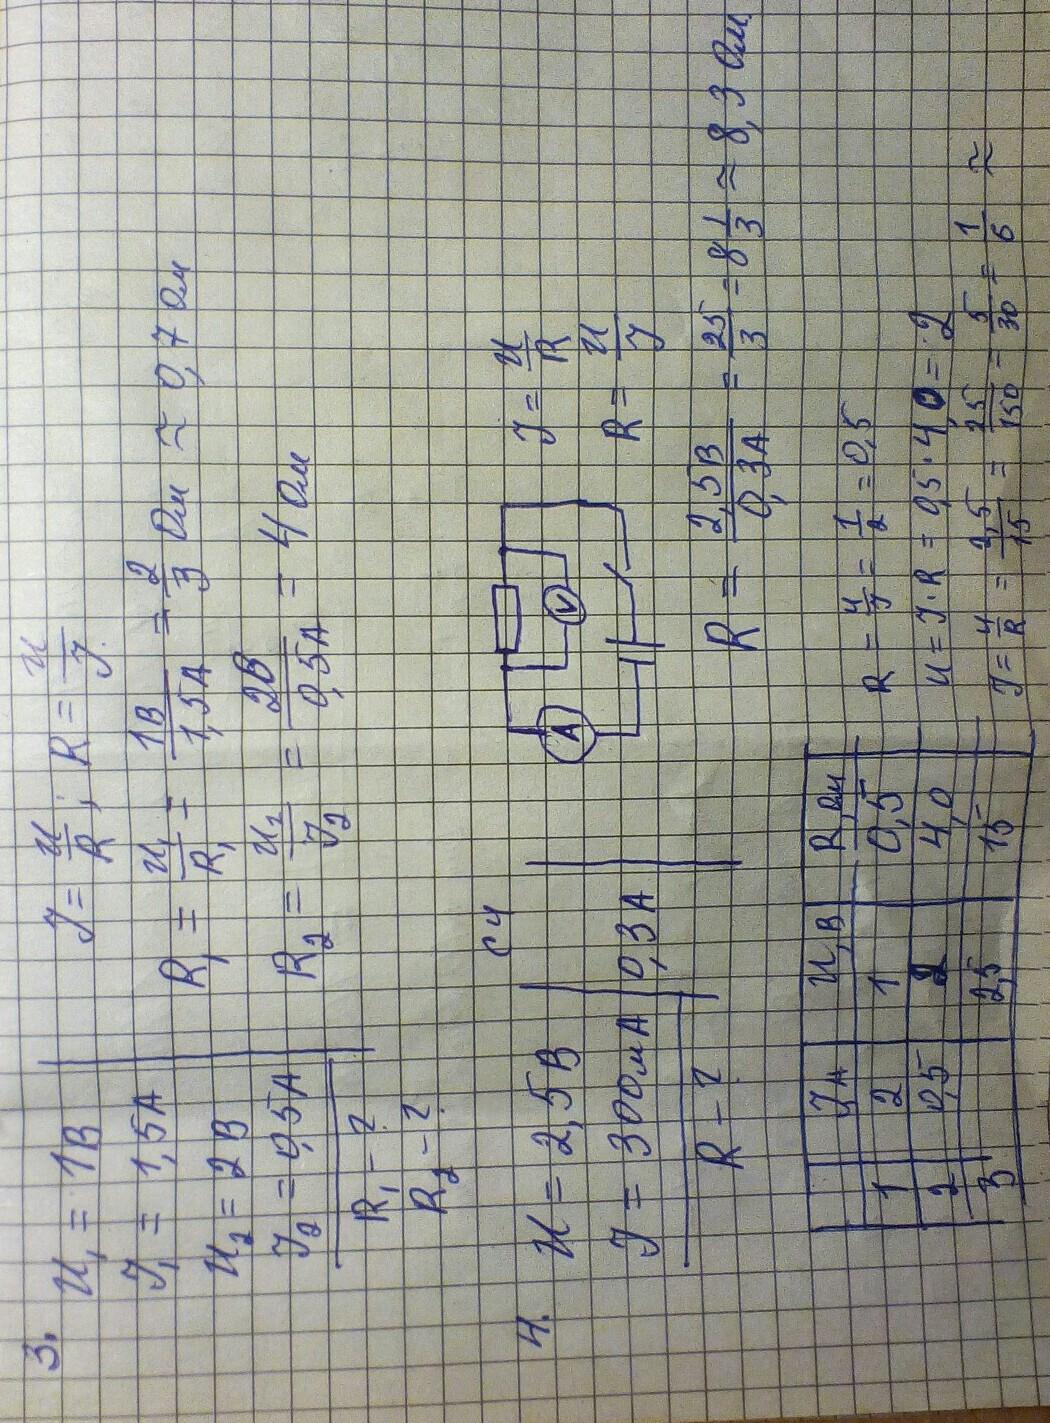 3.
U₁ = 1В
J₁ = 1,5А
U₂ = 2В
J₂ = 0,5А
R₁ - ?
R₂ - ?
J = U/R; R = U/J
R₁ = U₁/R₁ = 1В/1,5А = 2/3 Ом ≈ 0,7 Ом
R₂ = U₂/J₂ = 2В/0,5А = 4 Ом
4.
U = 2,5В
J = 300мА
R - ?
СИ
0,3А
A
V
J = U/R
R = U/J
R = 2,5В/0,3А = 25/3 = 8 1/3 ≈ 8,3 Ом
J А U,В R,Ом
1 2 1 0,5
2 0,5 2 4,0
3 2,5 15
R = U/J = 1/2 = 0,5
U = J·R = 0,5·4,0 = 2
J = U/R = 2,5/15 = 25/150 = 5/30 = 1/6 ≈